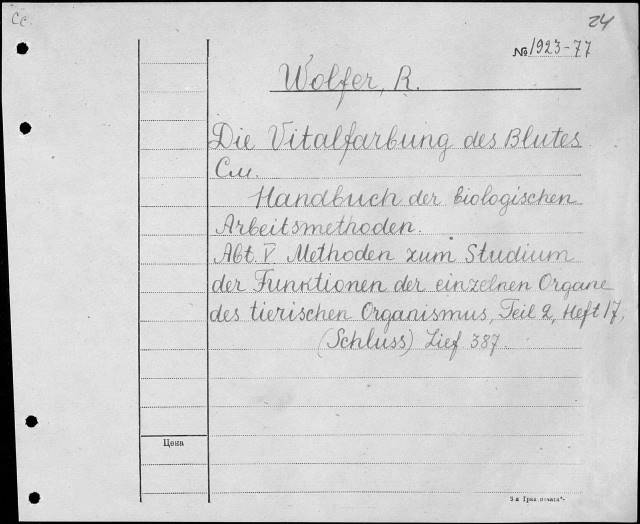 Cc.
24
№ 1923-77
Wolfer, R.
Die Vitalfärbung des Blutes
См.
Handbuch der biologischen
Arbeitsmethoden.
Abt. V Methoden zum Studium
der Funktionen der einzelnen Organe
des tierischen Organismus, Teil 2, Heft 17,
(Schluss) Lief. 387.
Цена